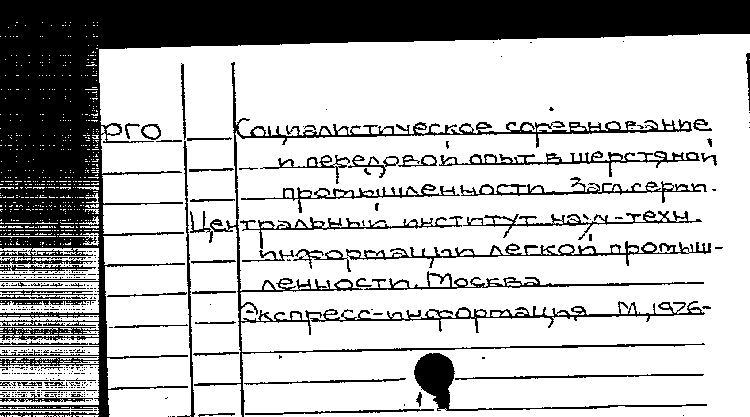 рго Социалистическое соревнование
и передовой опыт в шерстяной
промышленности. Загл. серии.
Центральный институт науч-техн.
информации легкой промыш-
ленности. Москва.
Экспресс-информация М., 1976-